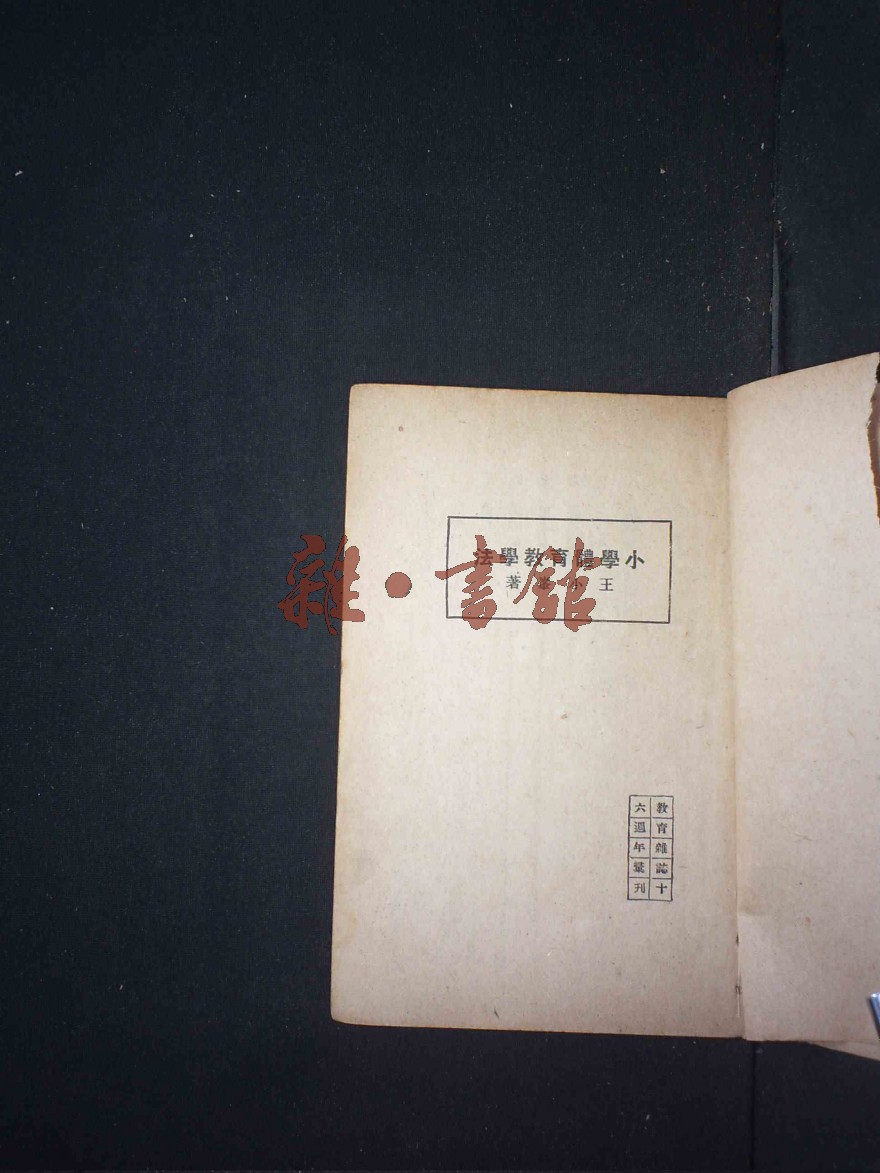 小學體育教學法
王小峯著
教育雜誌十
六週年彙刊
雜·書館